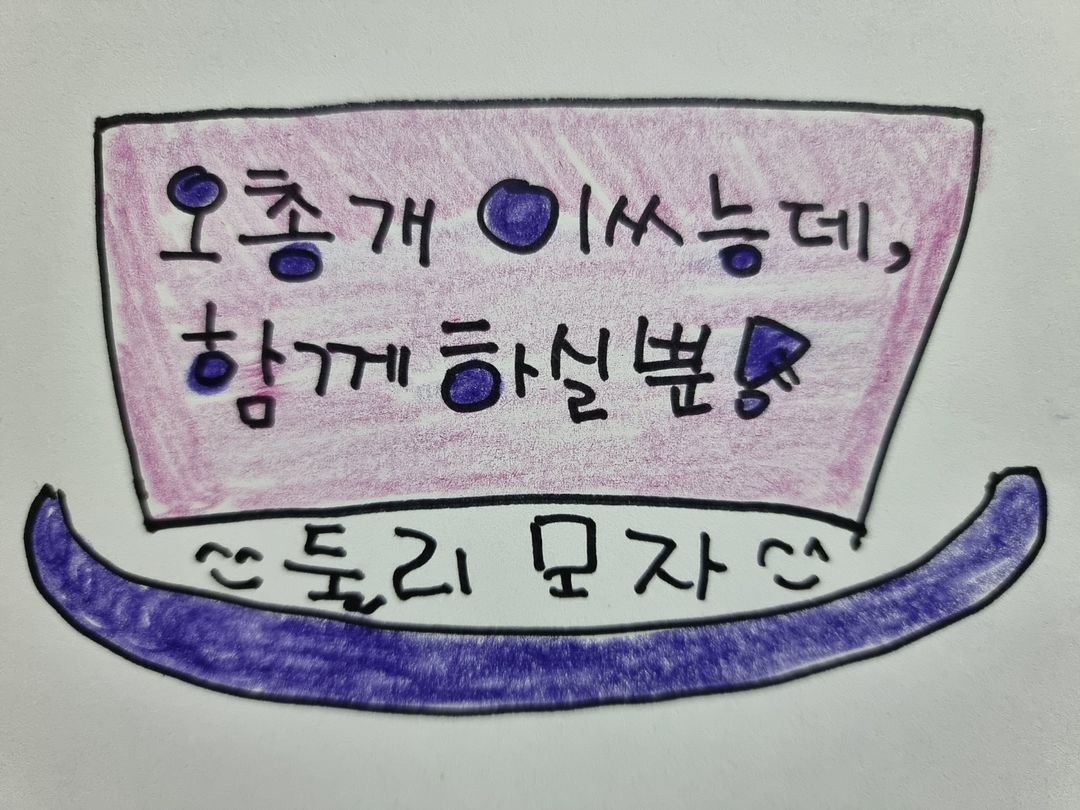 오총개 이쓰는데,
함께하실뿐!
^^둘리 모자^^